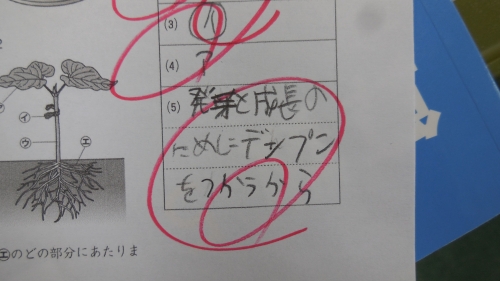 (3)
(4) ア
(5) 発芽と成長の
ためにデンプン
をつかうから
イ
ウ
エ
エのどの部分にあたりま